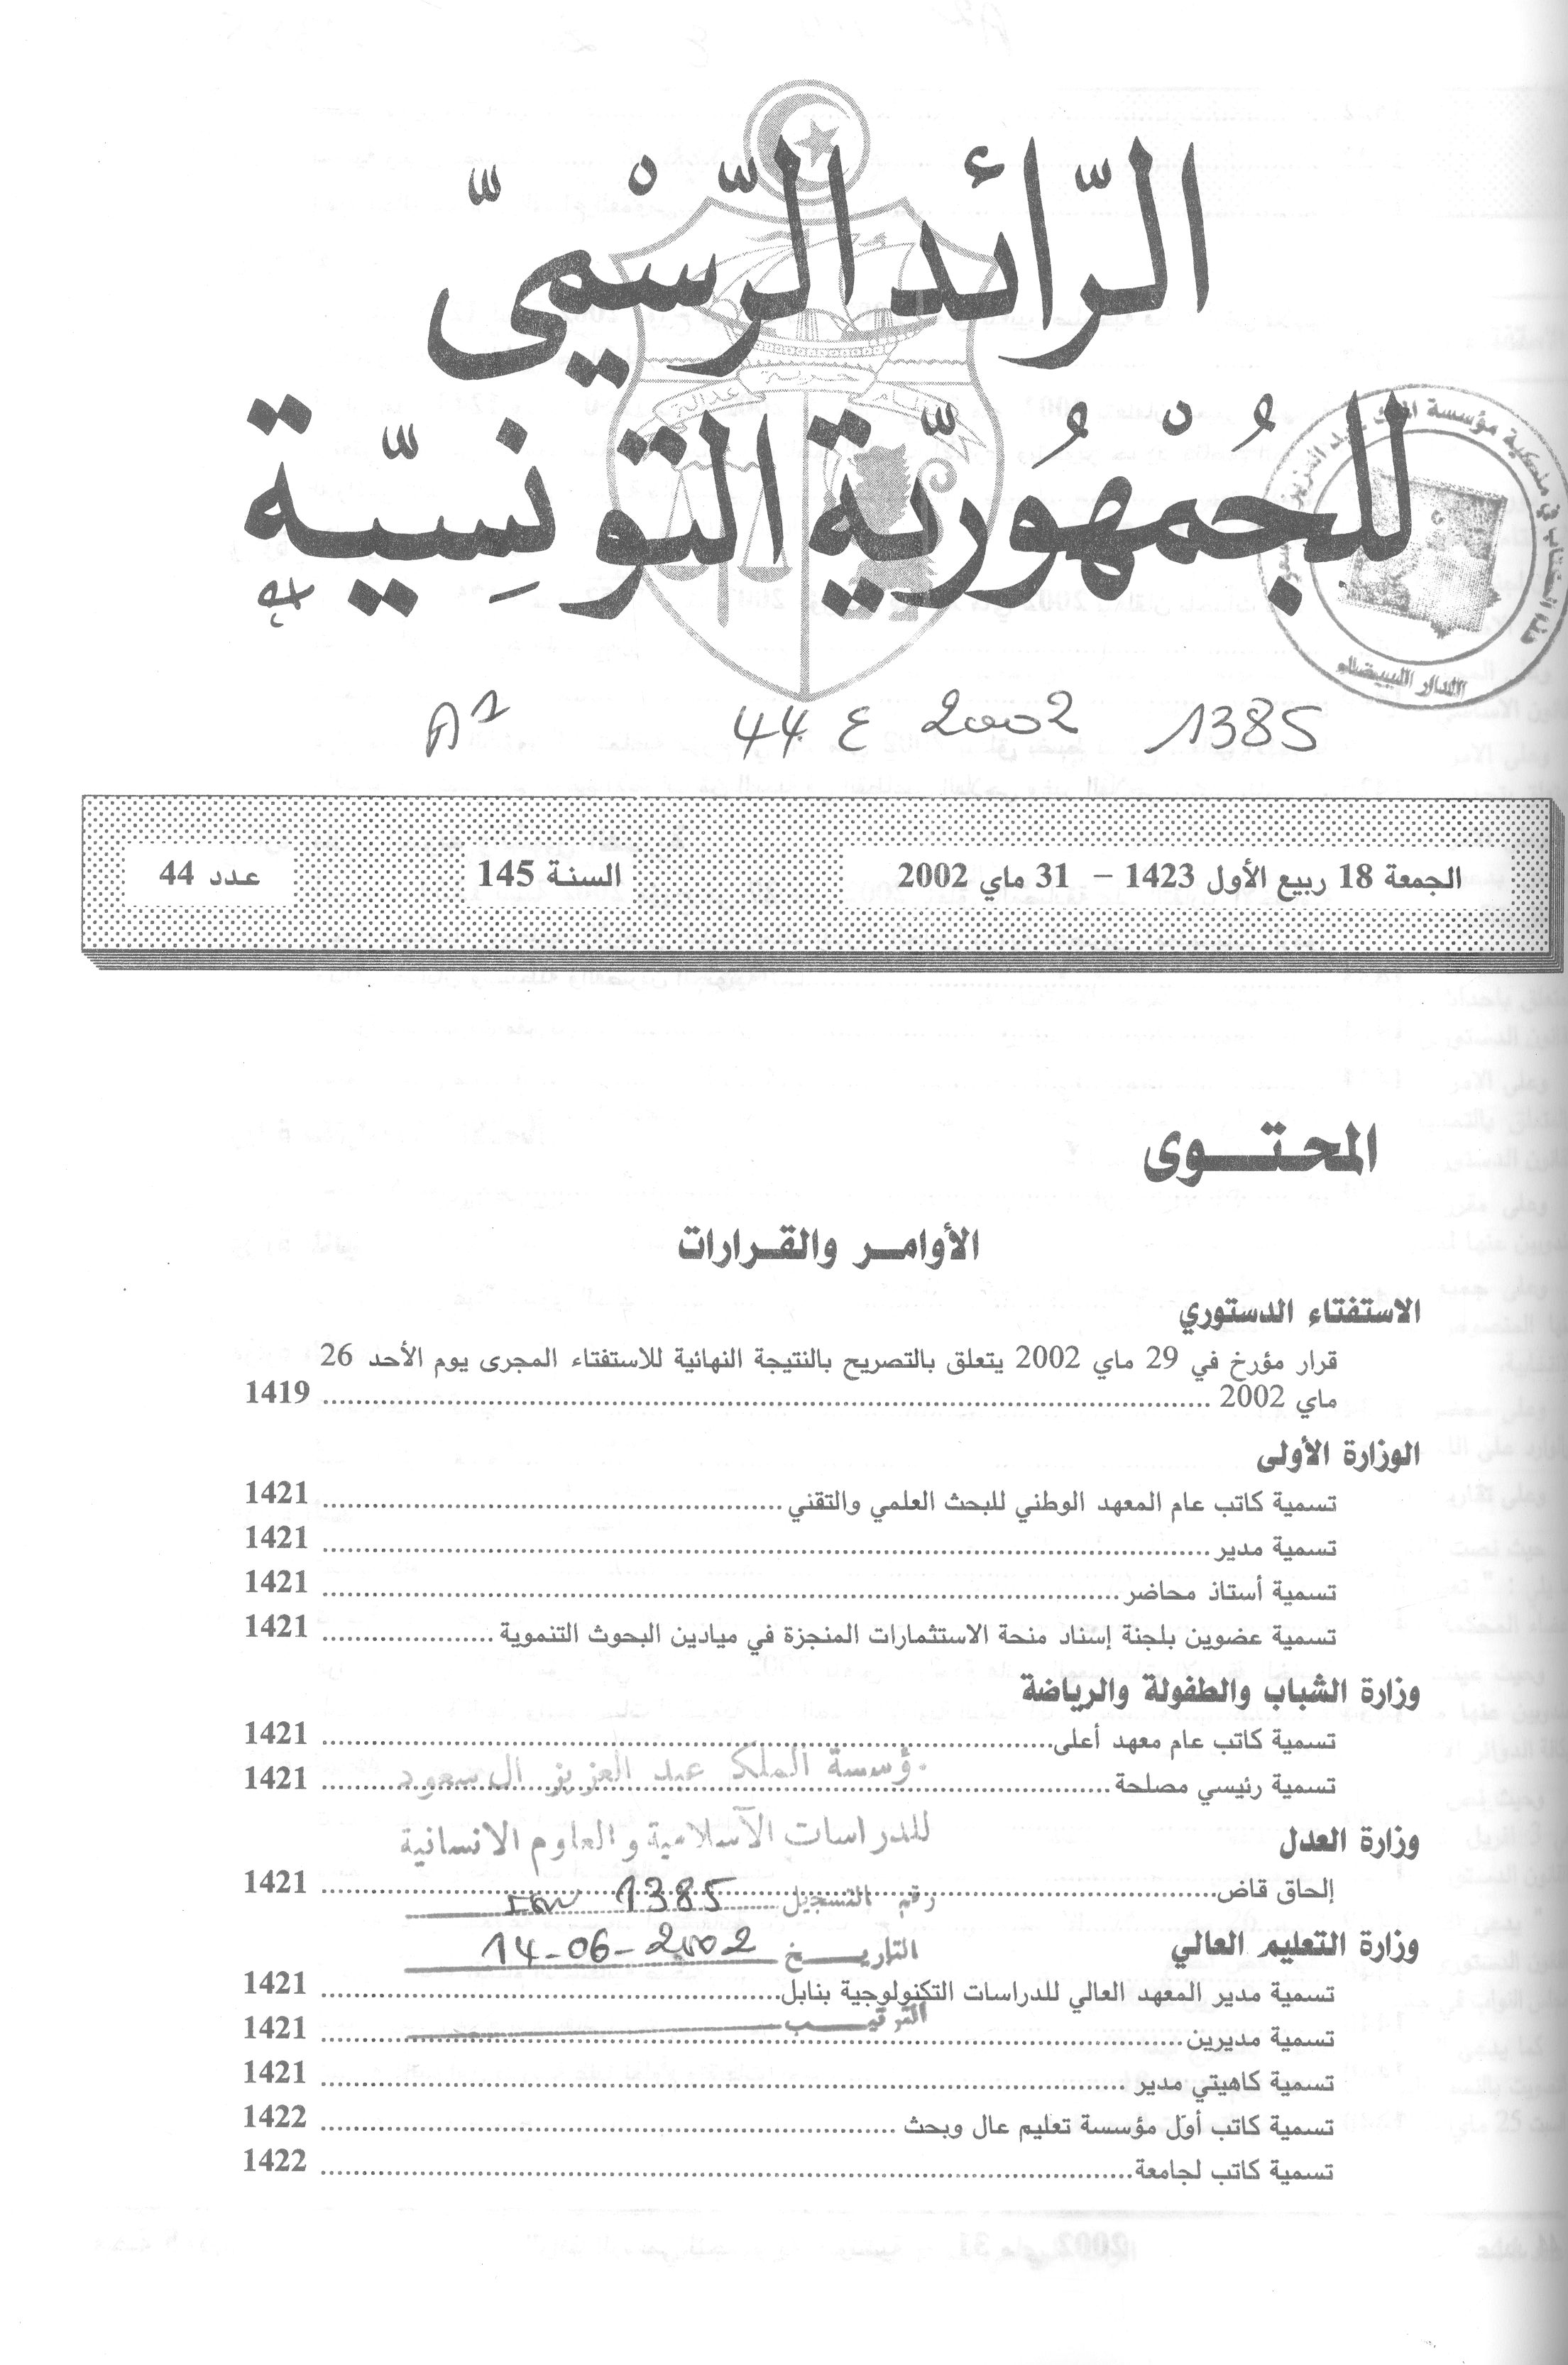 الرّائد الرّسْميّ
للجُمْهُوريّة التّونِسيّة
حرية
عدالة
مؤسسة الملك عبد العزيز
الدار البيضاء
A2 44 ع 2002 1385
الجمعة 18 ربيع الأول 1423 – 31 ماي 2002
السنة 145
عدد 44
المحتوى
الأوامر والقرارات
الاستفتاء الدستوري
قرار مؤرخ في 29 ماي 2002 يتعلق بالتصريح بالنتيجة النهائية للاستفتاء المجرى يوم الأحد 26
ماي 2002 ........ 1419
الوزارة الأولى
تسمية كاتب عام المعهد الوطني للبحث العلمي والتقني ........ 1421
تسمية مدير ........ 1421
تسمية أستاذ محاضر ........ 1421
تسمية عضوين بلجنة إسناد منحة الاستثمارات المنجزة في ميادين البحوث التنموية ........ 1421
وزارة الشباب والطفولة والرياضة
تسمية كاتب عام معهد أعلى ........ 1421
تسمية رئيسي مصلحة ........ 1421
مؤسسة الملك عبد العزيز ال سعود
للدراسات الاسلامية والعلوم الانسانية
وزارة العدل
إلحاق قاض ........ 1421
رقم التسجيل 1385
وزارة التعليم العالي
التاريخ 14-06-2002
تسمية مدير المعهد العالي للدراسات التكنولوجية بنابل ........ 1421
الترتيب
تسمية مديرين ........ 1421
تسمية كاهيتي مدير ........ 1421
تسمية كاتب أوّل مؤسسة تعليم عال وبحث ........ 1422
تسمية كاتب لجامعة ........ 1422